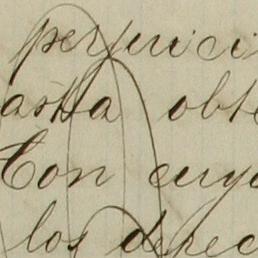 perjuici
asta obte
Con cuyo
los derec